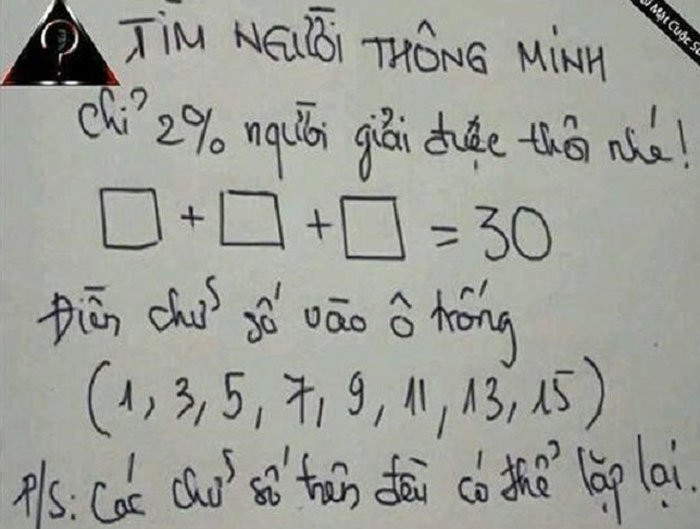 Í Mật Cuộc S
TÌM NGƯỜI THÔNG MINH
Chỉ 2% người giải được thôi nhé!
□ + □ + □ = 30
Điền chữ số vào ô trống
(1, 3, 5, 7, 9, 11, 13, 15)
P/S: Các chữ số trên đều có thể lặp lại.